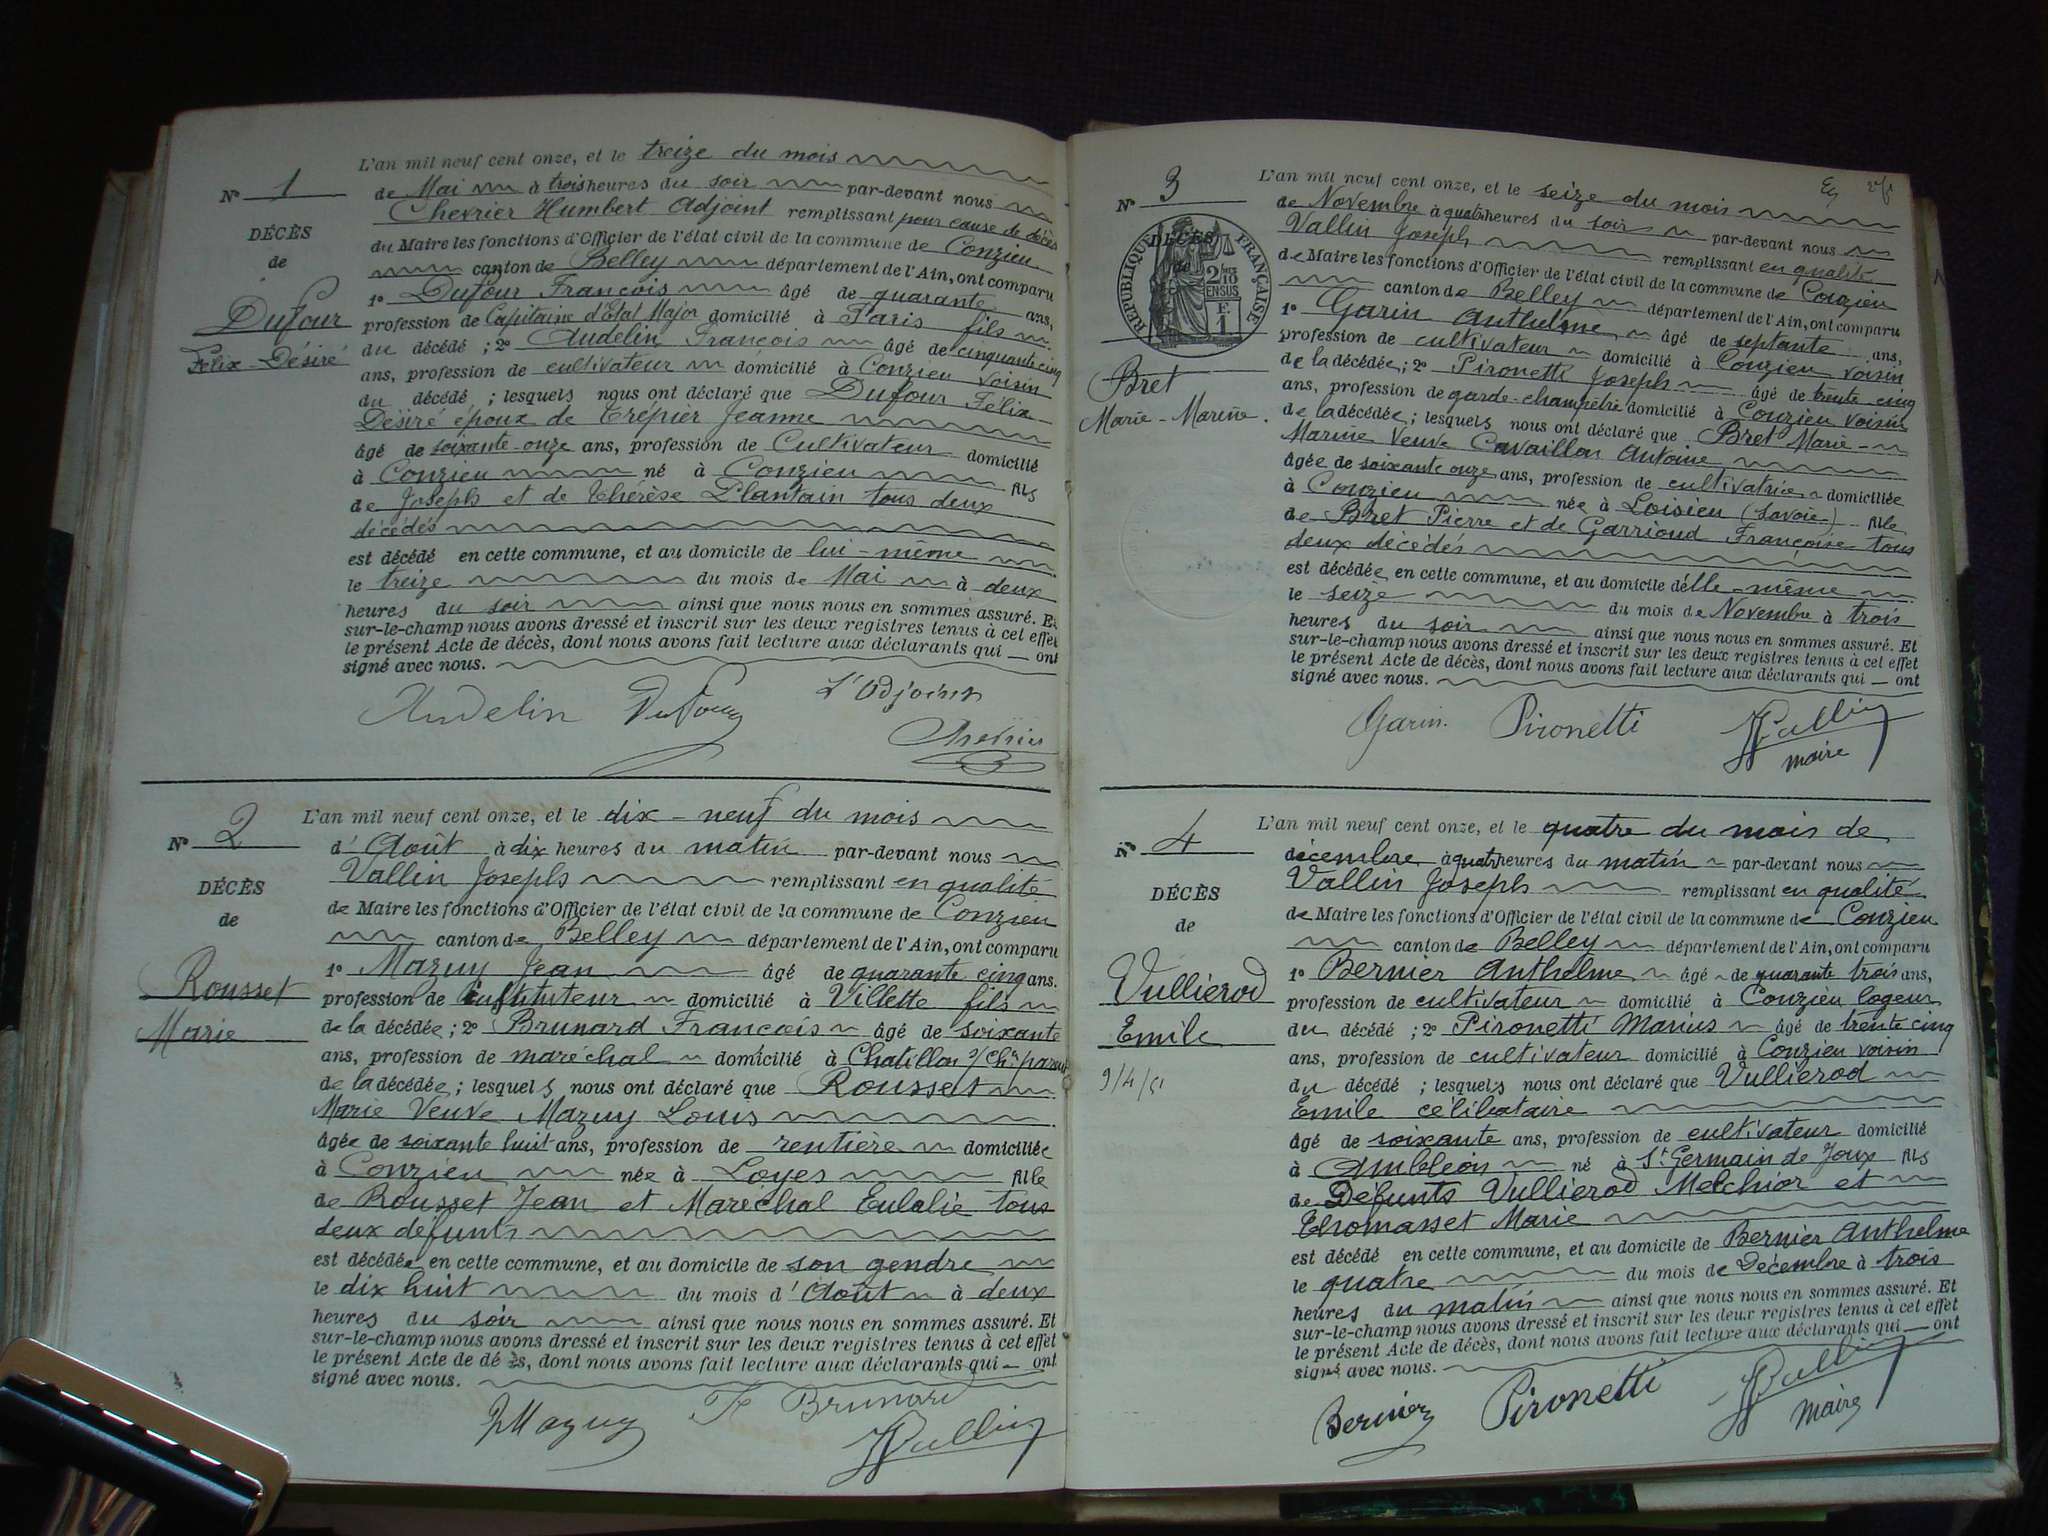 L'an mil neuf cent onze, et le treize du mois
N° 1
de Mai à trois heures du soir par-devant nous
Chevrier Humbert Adjoint remplissant pour cause de décès
DÉCÈS
du Maire les fonctions d'Officier de l'état civil de la commune de Conzieu
de
canton de Belley département de l'Ain, ont comparu
1° Dufour François âgé de quarante ans,
Dufour
profession de Capitaine d'Etat Major domicilié à Paris fils
Félix-Désiré
du décédé ; 2° Audelin François âgé de cinquante cinq
ans, profession de cultivateur domicilié à Conzieu voisin
du décédé ; lesquels nous ont déclaré que Dufour Félix
Désiré époux de Trépier Jeanne
âgé de soixante-onze ans, profession de Cultivateur domicilié
à Conzieu né à Conzieu fils
de Joseph et de Thérèse Plantain tous deux
décédés
est décédé en cette commune, et au domicile de lui-même
le treize du mois de Mai à deux
heures du soir ainsi que nous nous en sommes assuré. Et
sur-le-champ nous avons dressé et inscrit sur les deux registres tenus à cet effet
le présent Acte de décès, dont nous avons fait lecture aux déclarants qui — ont
signé avec nous.
Audelin Dufour L'Adjoint
Chevrier
L'an mil neuf cent onze, et le dix-neuf du mois
N° 2
d'Août à dix heures du matin par-devant nous
Vallin Joseph remplissant en qualité
DÉCÈS
de Maire les fonctions d'Officier de l'état civil de la commune de Conzieu
de
canton de Belley département de l'Ain, ont comparu
1° Mazuy Jean âgé de quarante cinq ans.
Rousset
profession de instituteur domicilié à Villette fils
Marie
de la décédée ; 2° Brunard François âgé de soixante
ans, profession de maréchal domicilié à Chatillon s/ Chne parent
de la décédée ; lesquels nous ont déclaré que Rousset
Marie Veuve Mazuy Louis
âgée de soixante huit ans, profession de rentière domiciliée
à Conzieu née à Loyes fille
de Rousset Jean et Maréchal Eulalie tous
deux défunts
est décédée en cette commune, et au domicile de son gendre
le dix huit du mois d'Août à deux
heures du soir ainsi que nous nous en sommes assuré. Et
sur-le-champ nous avons dressé et inscrit sur les deux registres tenus à cet effet
le présent Acte de décès, dont nous avons fait lecture aux déclarants qui — ont
signé avec nous.
J Mazuy F Brunard
J Vallin
L'an mil neuf cent onze, et le seize du mois
N° 3
de Novembre à quatre heures du soir par-devant nous
Vallin Joseph remplissant en qualité
DÉCÈS
de
RÉPUBLIQUE FRANÇAISE
2/10 EN SUS
E.
1
de Maire les fonctions d'Officier de l'état civil de la commune de Conzieu
canton de Belley département de l'Ain, ont comparu
1° Garin Anthelme âgé de septante ans,
profession de cultivateur domicilié à Conzieu voisin
de la décédée ; 2° Pironetti Joseph âgé de trente-cinq
Bret
ans, profession de garde-champêtre domicilié à Conzieu voisin
Marie-Marine.
de la décédée ; lesquels nous ont déclaré que Bret Marie-
Marine Veuve Cavaillon Antoine
âgée de soixante onze ans, profession de cultivatrice domiciliée
à Conzieu née à Loisieu (Savoie) fille
de Bret Pierre et de Garrioud Françoise tous
deux décédés
est décédée en cette commune, et au domicile d'elle-même
le seize du mois de Novembre à trois
heures du soir ainsi que nous nous en sommes assuré. Et
sur-le-champ nous avons dressé et inscrit sur les deux registres tenus à cet effet
le présent Acte de décès, dont nous avons fait lecture aux déclarants qui — ont
signé avec nous.
Garin. Pironetti J Vallin
maire
L'an mil neuf cent onze, et le quatre du mois de
N° 4
décembre à quatre heures du matin par-devant nous
Vallin Joseph remplissant en qualité
DÉCÈS
de Maire les fonctions d'Officier de l'état civil de la commune de Conzieu
de
canton de Belley département de l'Ain, ont comparu
1° Bernier Anthelme âgé de quarante trois ans,
Vullierod
profession de cultivateur domicilié à Conzieu logeur
Emile
du décédé ; 2° Pironetti Marius âgé de trente cinq
ans, profession de cultivateur domicilié à Conzieu voisin
9/4/51
du décédé ; lesquels nous ont déclaré que Vullierod
Emile célibataire
âgé de soixante ans, profession de cultivateur domicilié
à Ambléon né à St Germain de Joux fils
de Défunts Vullierod Melchior et
Thomasset Marie
est décédé en cette commune, et au domicile de Bernier Anthelme
le quatre du mois de Décembre à trois
heures du matin ainsi que nous nous en sommes assuré. Et
sur-le-champ nous avons dressé et inscrit sur les deux registres tenus à cet effet
le présent Acte de décès, dont nous avons fait lecture aux déclarants qui — ont
signé avec nous.
Bernier Pironetti J Vallin
Maire